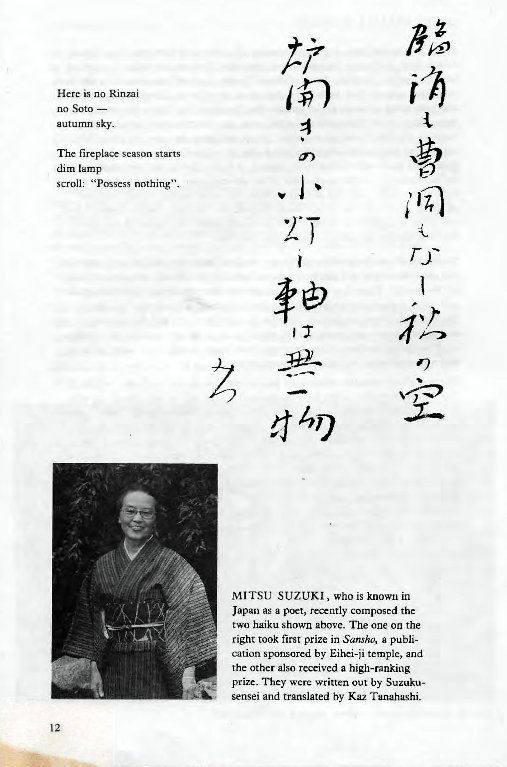 臨済も曹洞もなし秋の空
炉開きの小灯し軸は無一物
みつ
Here is no Rinzai
no Soto —
autumn sky.
The fireplace season starts
dim lamp
scroll: "Possess nothing".
MITSU SUZUKI, who is known in
Japan as a poet, recently composed the
two haiku shown above. The one on the
right took first prize in Sansho, a publi-
cation sponsored by Eihei-ji temple, and
the other also received a high-ranking
prize. They were written out by Suzuku-
sensei and translated by Kaz Tanahashi.
12